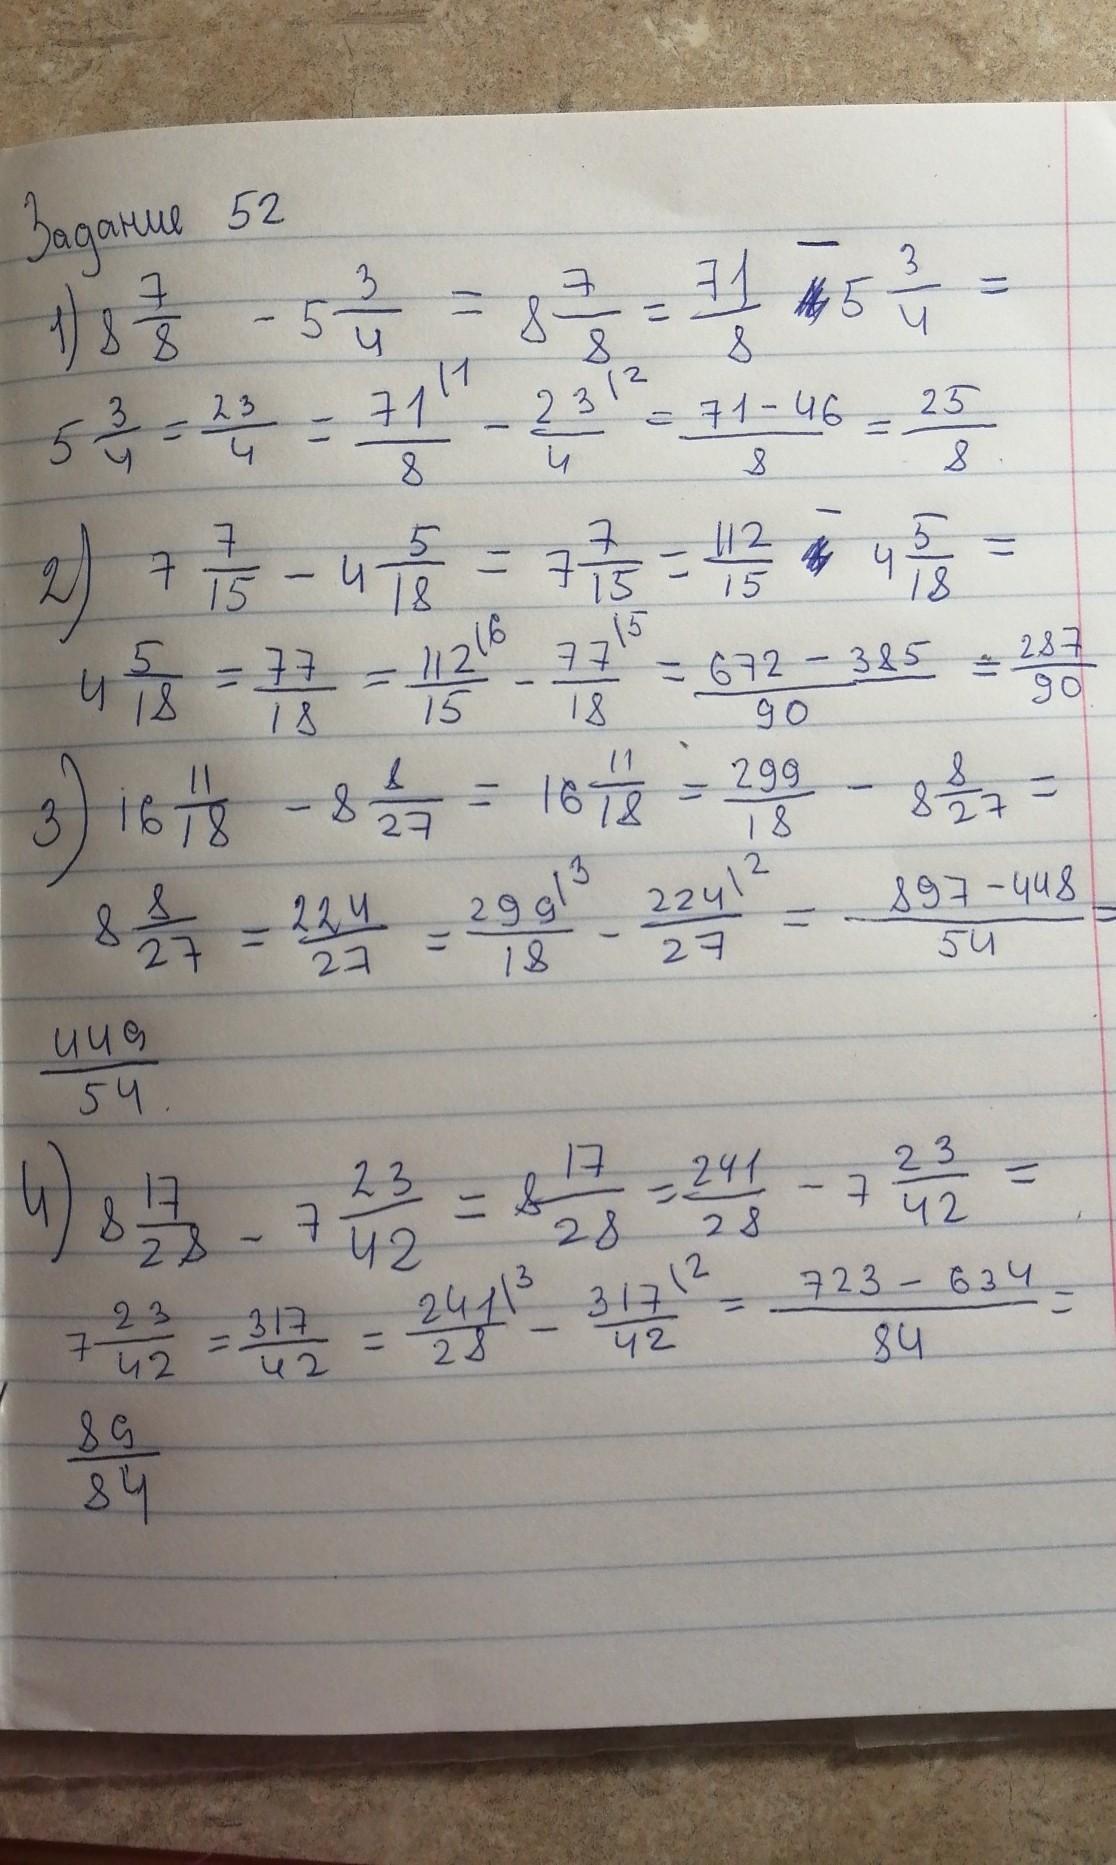 Задание 52
1) 8 7/8 - 5 3/4 = 8 7/8 = 71/8 - 5 3/4 =
5 3/4 = 23/4 = 71\1/8 - 23\2/4 = 71-46/8 = 25/8
2) 7 7/15 - 4 5/18 = 7 7/15 = 112/15 - 4 5/18 =
4 5/18 = 77/18 = 112\6/15 - 77\5/18 = 672-385/90 = 287/90
3) 16 11/18 - 8 8/27 = 16 11/18 = 299/18 - 8 8/27 =
8 8/27 = 224/27 = 299\3/18 - 224\2/27 = 897-448/54 =
449/54.
4) 8 17/28 - 7 23/42 = 8 17/28 = 241/28 - 7 23/42 =
7 23/42 = 317/42 = 241\3/28 - 317\2/42 = 723-634/84 =
89/84